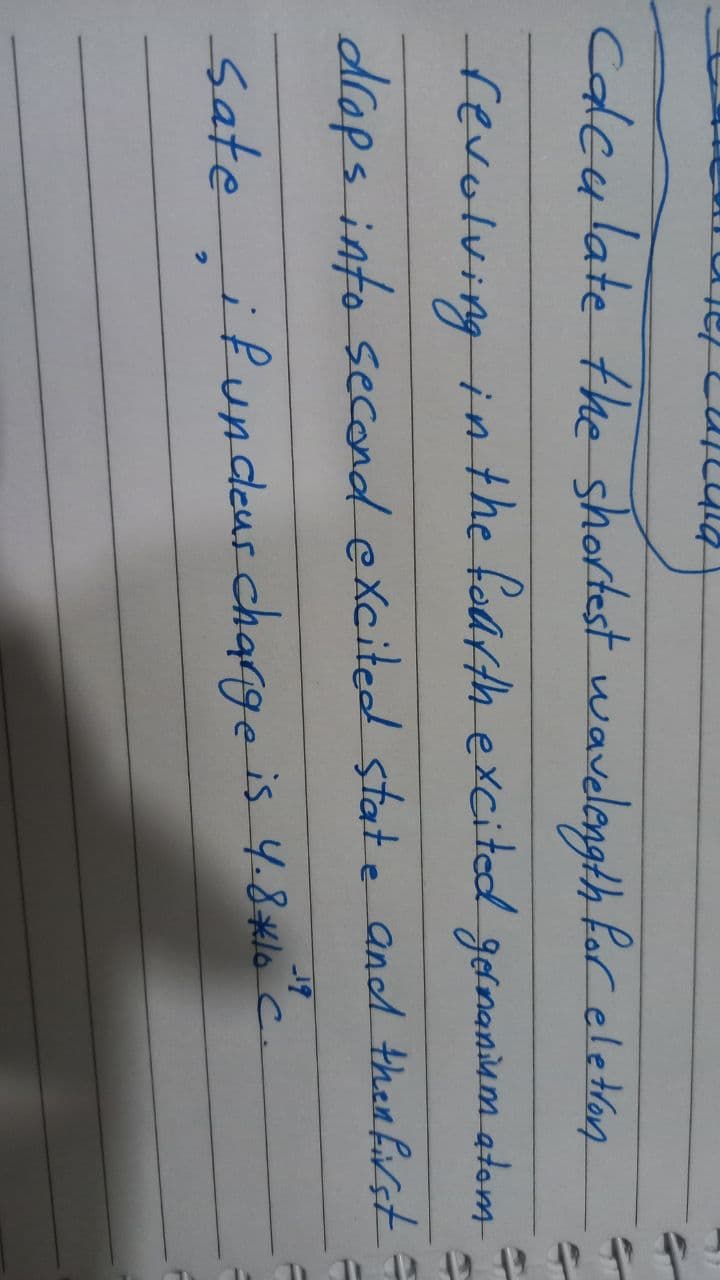 Calculate the shortest wavelength for eletron
revolving in the fourth excited germanium atom
drops into second excited state and then first
sate, if uncleus charge is 4.8*10^-19 C.